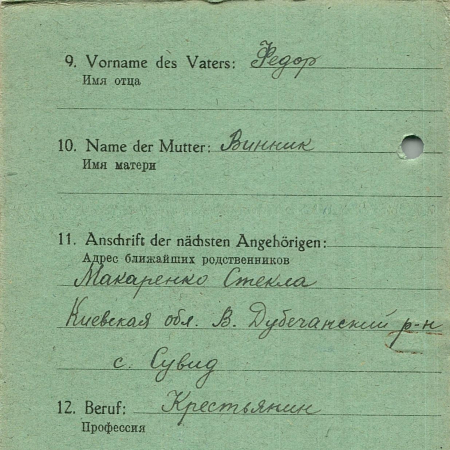 9. Vorname des Vaters: Федор
Имя отца
10. Name der Mutter: Винник
Имя матери
11. Anschrift der nächsten Angehörigen:
Адрес ближайших родственников
Макаренко Стекла
Киевская обл. В. Дубечанский р-н
с. Сувид
12. Beruf: Крестьянин
Профессия